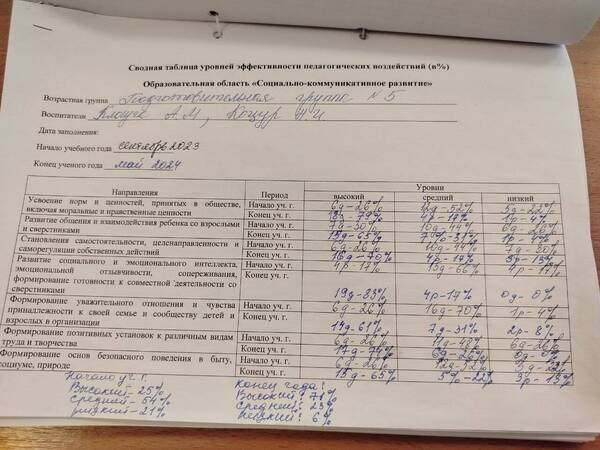 Сводная таблица уровней эффективности педагогических воздействий (в%)
Образовательная область «Социально-коммуникативное развитие»
Возрастная группа Подготовительная группа №5
Воспитатели А.М., Коцур Н.И.
Дата заполнения:
Начало учебного года сентябрь 2023
Конец ученого года май 2024
Направления Период Уровни
высокий средний низкий
Усвоение норм и ценностей, принятых в обществе, включая моральные и нравственные ценности
Начало уч. г. 6д-26% 12д-52% 5д-22%
Конец уч. г. 18д-79% 4р-17% 1р-4%
Развитие общения и взаимодействия ребенка со взрослыми и сверстниками
Начало уч. г. 7д-30% 10д-44% 6д-26%
Конец уч. г. 15д-65% 1р-4%
Становления самостоятельности, целенаправленности и саморегуляции собственных действий
Начало уч. г. 6д-26% 7д-30%
Конец уч. г. 16д-70% 4р-17% 3р-13%
Развитие социального и эмоционального интеллекта, эмоциональной отзывчивости, сопереживания, формирование готовности к совместной деятельности со сверстниками
Начало уч. г. 4р-17% 15д-66% 4р-17%
Конец уч. г. 19д-83% 4р-17% 0д-0%
Формирование уважительного отношения и чувства принадлежности к своей семье и сообществу детей и взрослых в организации
Начало уч. г. 6д-26% 16д-70% 1р-4%
Конец уч. г. 14д-61% 7д-31% 2р-8%
Формирование позитивных установок к различным видам труда и творчества
Начало уч. г. 6д-26% 11д-48% 6д-26%
Конец уч. г. 17д-74% 6д-26% 0д-0%
Формирование основ безопасного поведения в быту, социуме, природе
Начало уч. г. 6д-26% 12д-52% 5д-22%
Конец уч. г. 15д-65% 5%-22% 3р-13%
Начало уч г.
Высокий-25%
Средней-54%
Низкий-21%
Конец года:
Высокий: 71%
Средней: 23%
Низкий: 6%